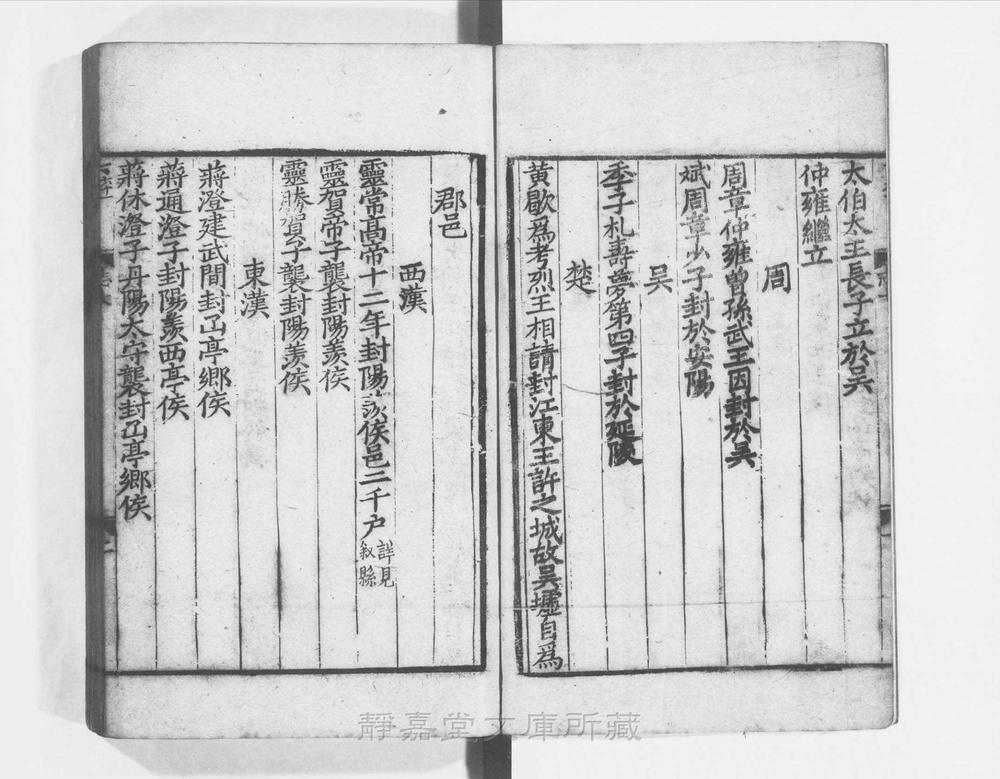 太伯太王長子立於吴
仲雍繼立
周
周章仲雍曾孫武王因封於吴
斌周章少子封於安陽
吴
季子札壽夢第四子封於延陵
楚
黄歇爲考烈王相請封江東王許之城故吴墟自爲
郡邑
西漢
靈常髙帝十二年封陽羨侯邑二千户詳見
叙縣
靈賀常子襲封陽羨侯
靈勝賀子襲封陽羨侯
東漢
蔣澄建武間封㞯亭鄉侯
蔣通澄子封陽羨西亭侯
蔣休澄子丹陽太守襲封㞯亭鄉侯
靜嘉堂文庫所藏